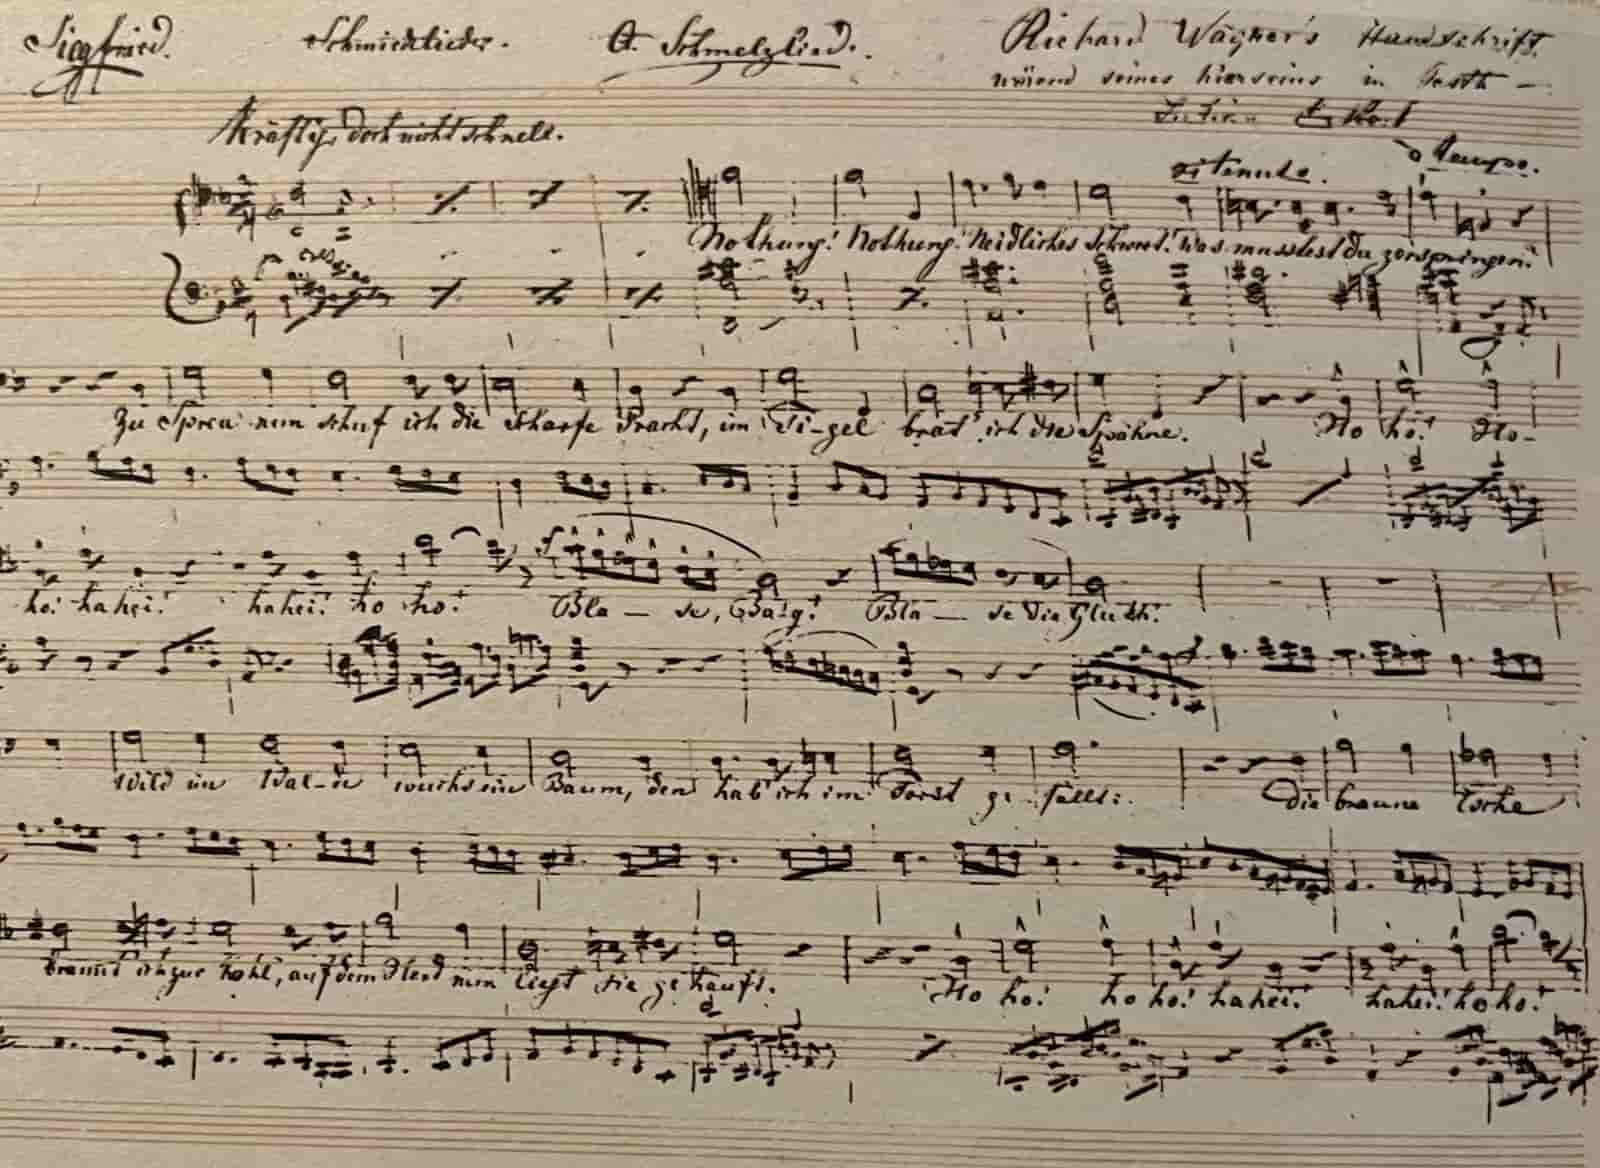 Siegfried. Schmiedelieder. A. Schmelzlied. Richard Wagner's Handschrift.
wärend seines hierseins in Pesth —
Kräftig, doch nicht schnell.
ritenuto. a tempo.
Nothung! Nothung! Neidliches Schwert! Was musstest du zerspringen!
Zu Spreu nun schuf ich die scharfe Pracht, im Ti-gel brat' ich die Spähne. Ho ho! Ho-
ho! hahei! hahei! ho ho! Bla — se, Balg! Bla — se die Gluth!
Wild im Wal-de wuchs ein Baum, den hab' ich im Forst ge-fällt:. Die braune Esche
brannt' ich zur Kohl', auf dem Herd nun liegt sie gehäuft. Ho ho! ho ho! hahei! hahei! ho ho!